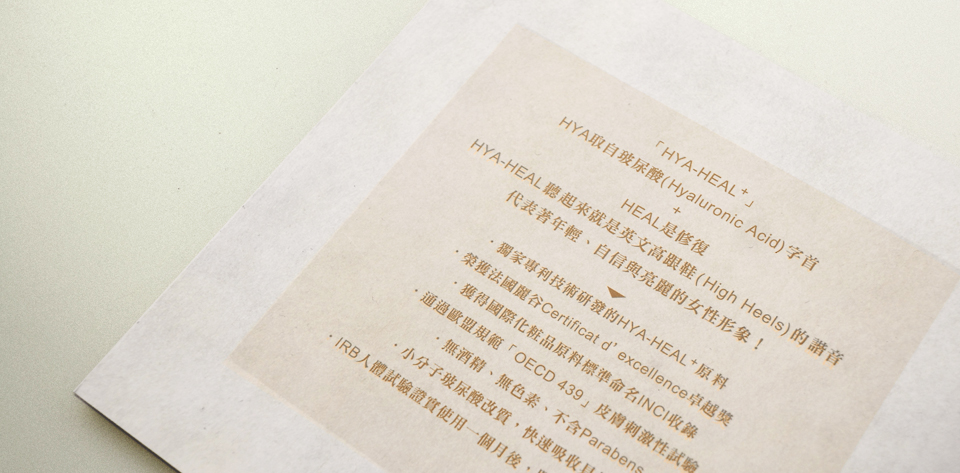 「HYA-HEAL⁺」
HYA取自玻尿酸(Hyaluronic Acid)字首
+
HEAL是修復
HYA-HEAL聽起來就是英文高跟鞋(High Heels)的諧音
代表著年輕、自信與亮麗的女性形象！
· 獨家專利技術研發的HYA-HEAL⁺原料
· 榮獲法國麗谷Certificat d’ excellence卓越獎
· 獲得國際化粧品原料標準命名INCI收錄
· 通過歐盟規範「OECD 439」皮膚刺激性試驗
· 無酒精、無色素、不含Parabens
· 小分子玻尿酸改質，快速吸收
· IRB人體試驗證實使用一個月後，